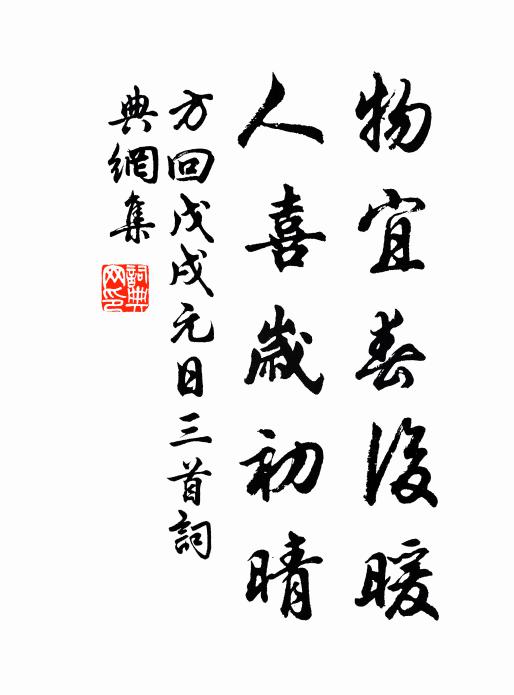 物宜春後暖
人喜歲初晴
方回戊戌元日三首詞
典網集
詞典網印